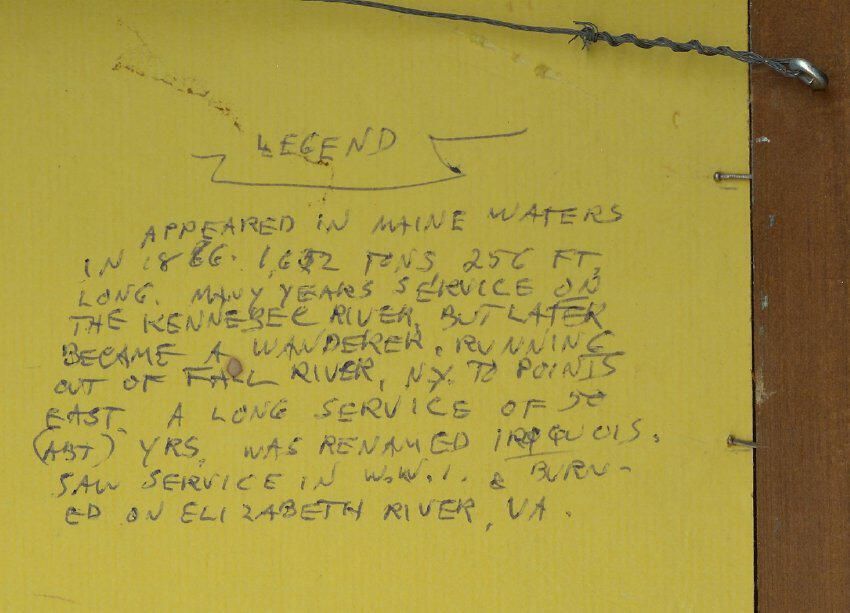 LEGEND
APPEARED IN MAINE WATERS
IN 1866. 1,632 TONS, 256 FT,
LONG. MANY YEARS SERVICE ON
THE KENNEBEC RIVER, BUT LATER
BECAME A WANDERER, RUNNING
OUT OF FALL RIVER, N.Y. TO POINTS
EAST. A LONG SERVICE OF 50
(ABT) YRS, WAS RENAMED IROQUOIS.
SAW SERVICE IN W.W.1. & BURN-
ED ON ELIZABETH RIVER, VA.